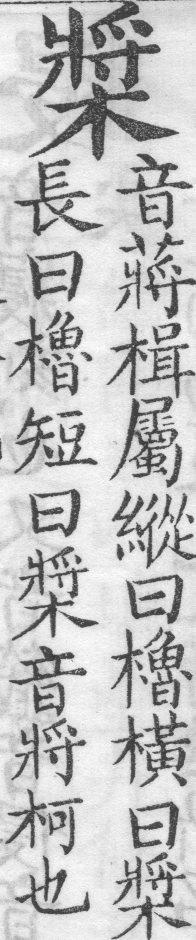 槳
音蔣楫屬縱曰櫓橫曰槳
長曰櫓短曰槳音將柯也